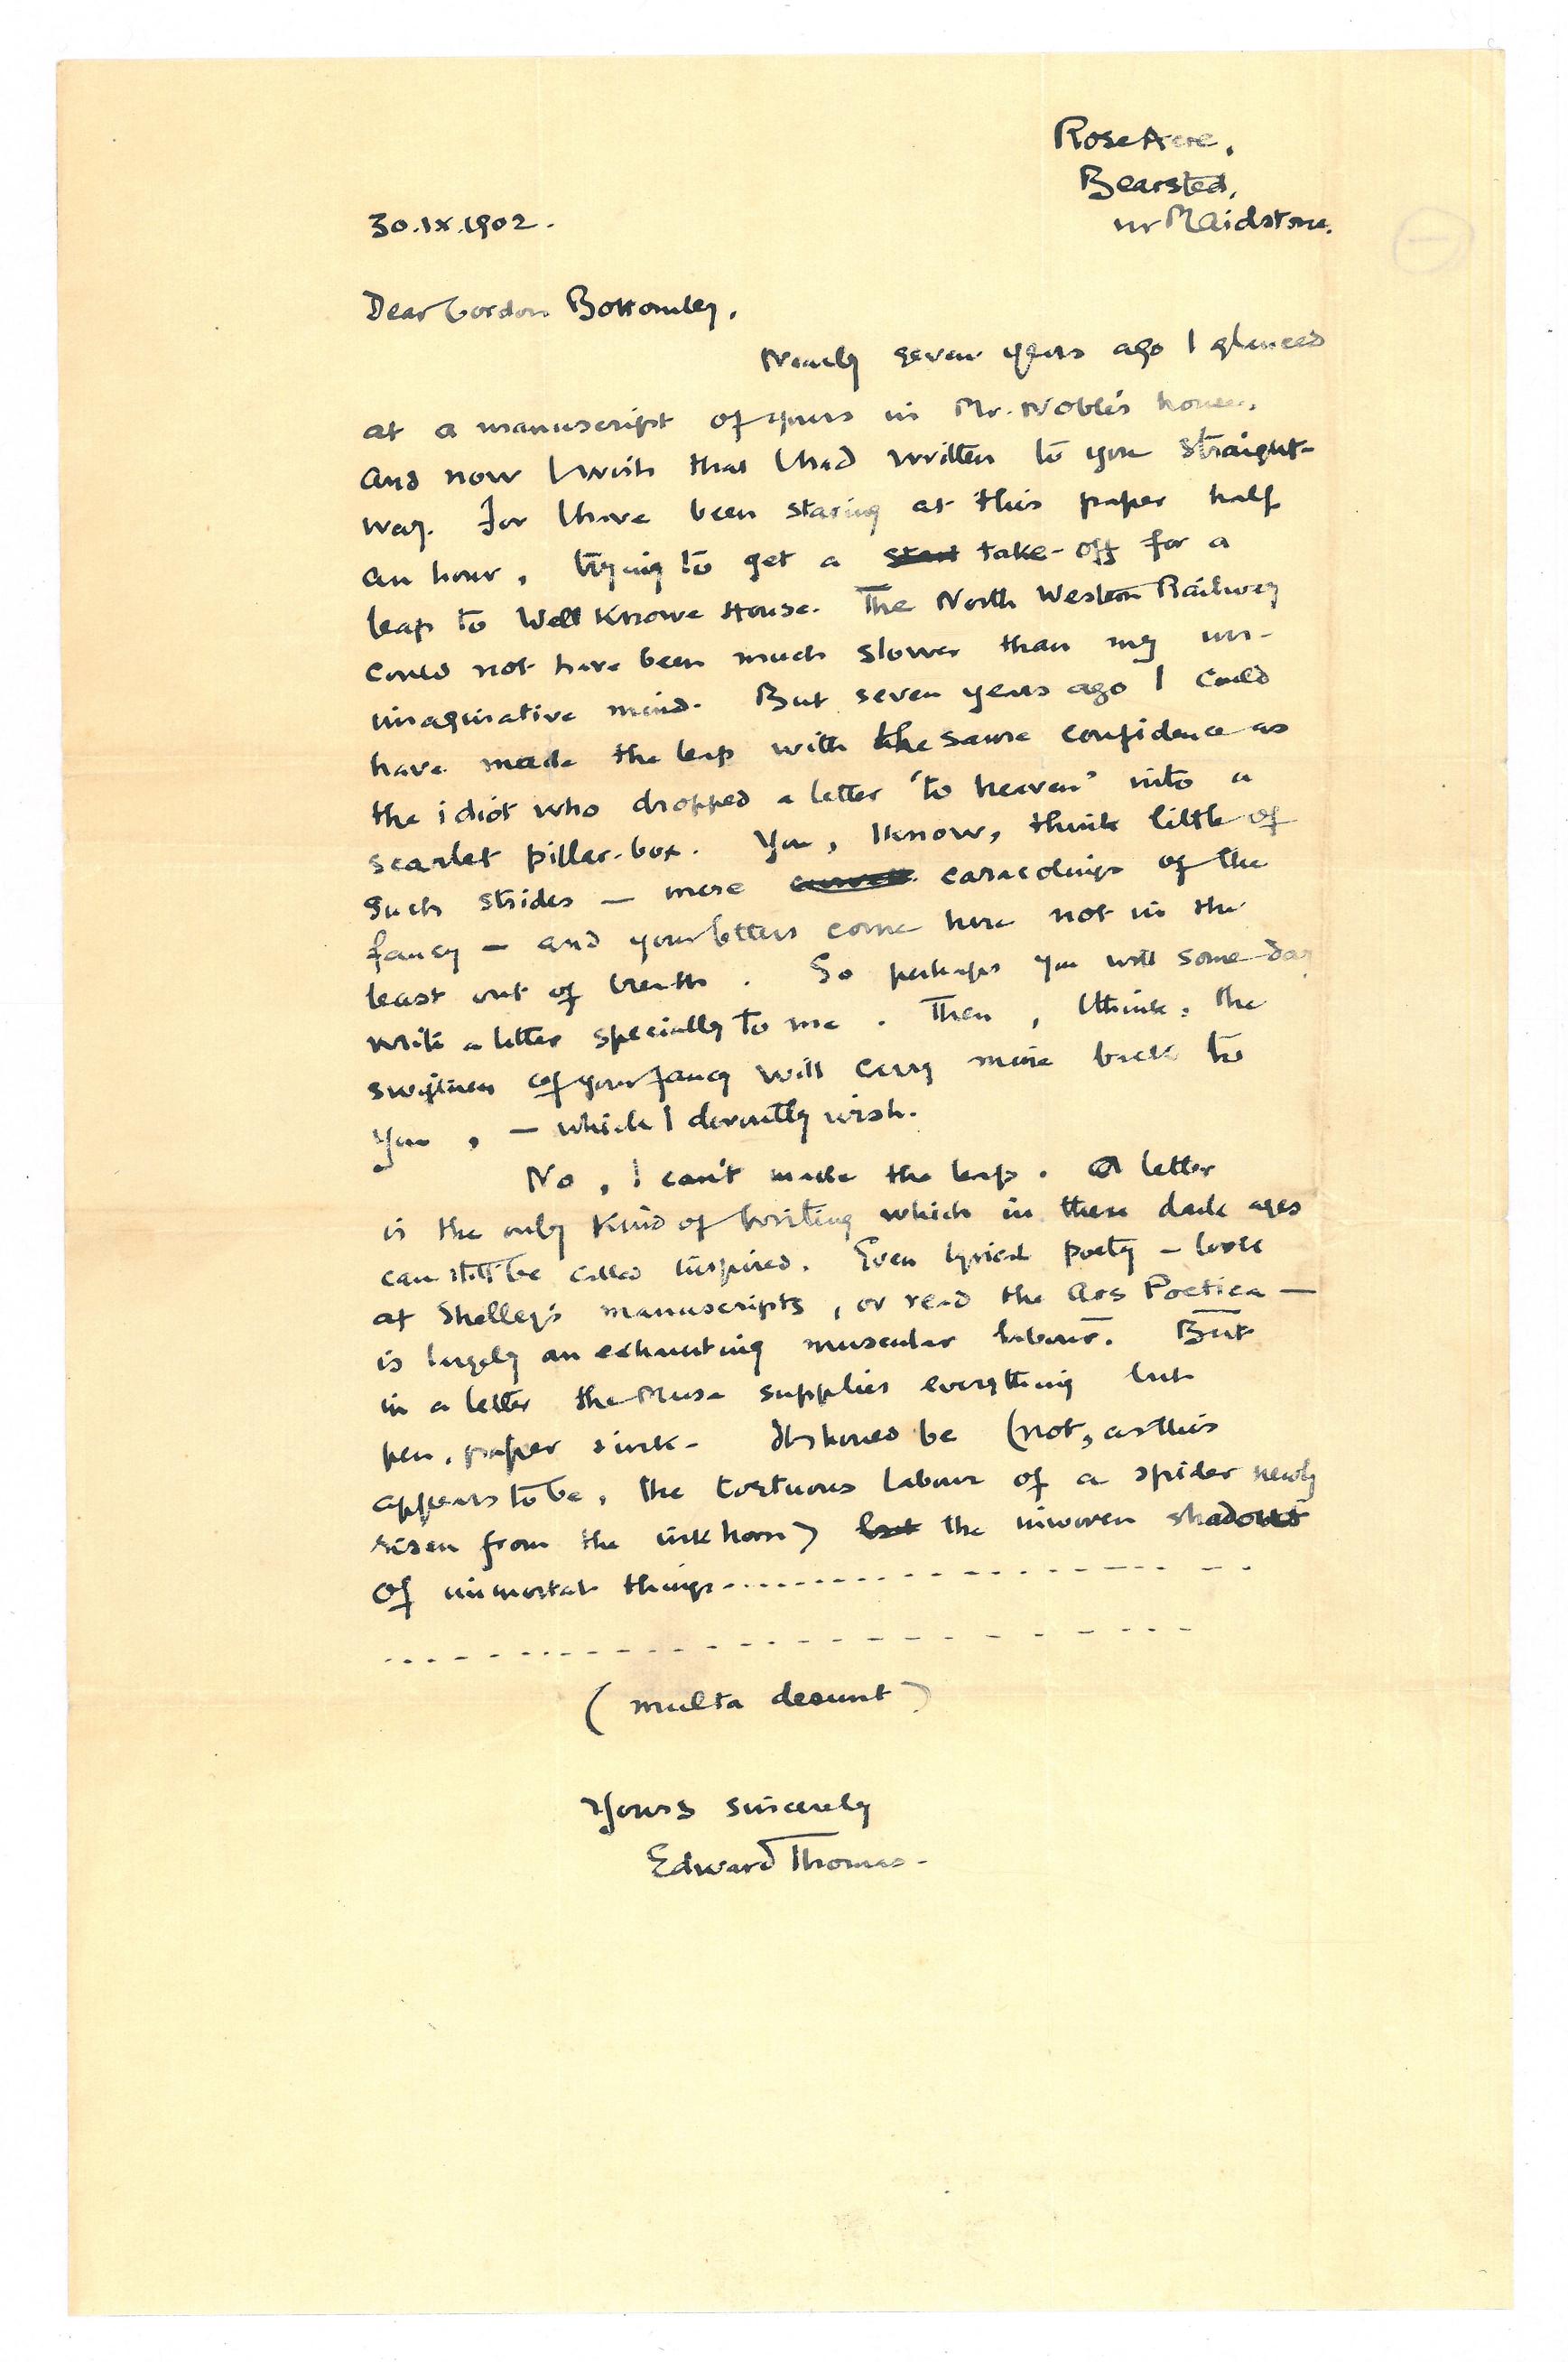 Rose Acre,
Bearsted,
nr Maidstone.
30.IX.1902.
Dear Gordon Bottomley,
Nearly seven years ago I glanced
at a manuscript of yours in Mr. Noble's house,
and now I wish that I had written to you straight-
way. For I have been staring at this paper half
an hour, trying to get a start take-off for a
leap to Well Knowe House. The North Western Railway
could not have been much slower than my un-
imaginative mind. But seven years ago I could
have made the leap with the same confidence as
the idiot who dropped a letter 'to heaven' into a
scarlet pillar-box. You, I know, think little of
such strides — mere caracolings of the
fancy — and your letters come here not in the
least out of breath. So perhaps you will some day
write a letter specially to me. Then, I think, the
swiftness of your fancy will carry mine back to
you, — which I devoutly wish.
No, I can't make the leap. A letter
is the only kind of writing which in these dark ages
can still be called inspired. Even lyrical poetry — look
at Shelley's manuscripts, or read the Ars Poetica —
is largely an exhausting muscular labour. But
in a letter the Muse supplies everything but
pen, paper & ink. It should be (not, as this
appears to be, the tortuous labour of a spider newly
risen from the ink horn) but the inwoven shadows
of immortal things..................
..................
(multa desunt)
Yours sincerely
Edward Thomas.